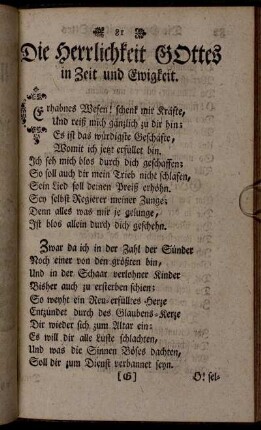 81
Die Herrlichkeit GOttes
in Zeit und Ewigkeit.
Erhabnes Wesen! schenk mir Kräfte,
Und reiß mich gänzlich zu dir hin:
Es ist das würdigste Geschäfte,
Womit ich jetzt erfüllet bin.
Ich seh mich blos durch dich geschaffen:
So soll auch dir mein Trieb nicht schlafen,
Sein Lied soll deinen Preiß erhöhn.
Sey selbst Regierer meiner Zunge;
Denn alles was mir je gelunge,
Ist blos allein durch dich geschehn.
Zwar da ich in der Zahl der Sünder
Noch einer von den größten bin,
Und in der Schaar verlohner Kinder
Bisher auch zu ersterben schien:
So weyht ein Reu-erfülltes Herze
Entzündet durch des Glaubens-Kerze
Dir wieder sich zum Altar ein:
Es will dir alle Lüste schlachten,
Und was die Sinnen Böses dachten,
Soll dir zum Dienst verbannet seyn.
[G] O! sel-